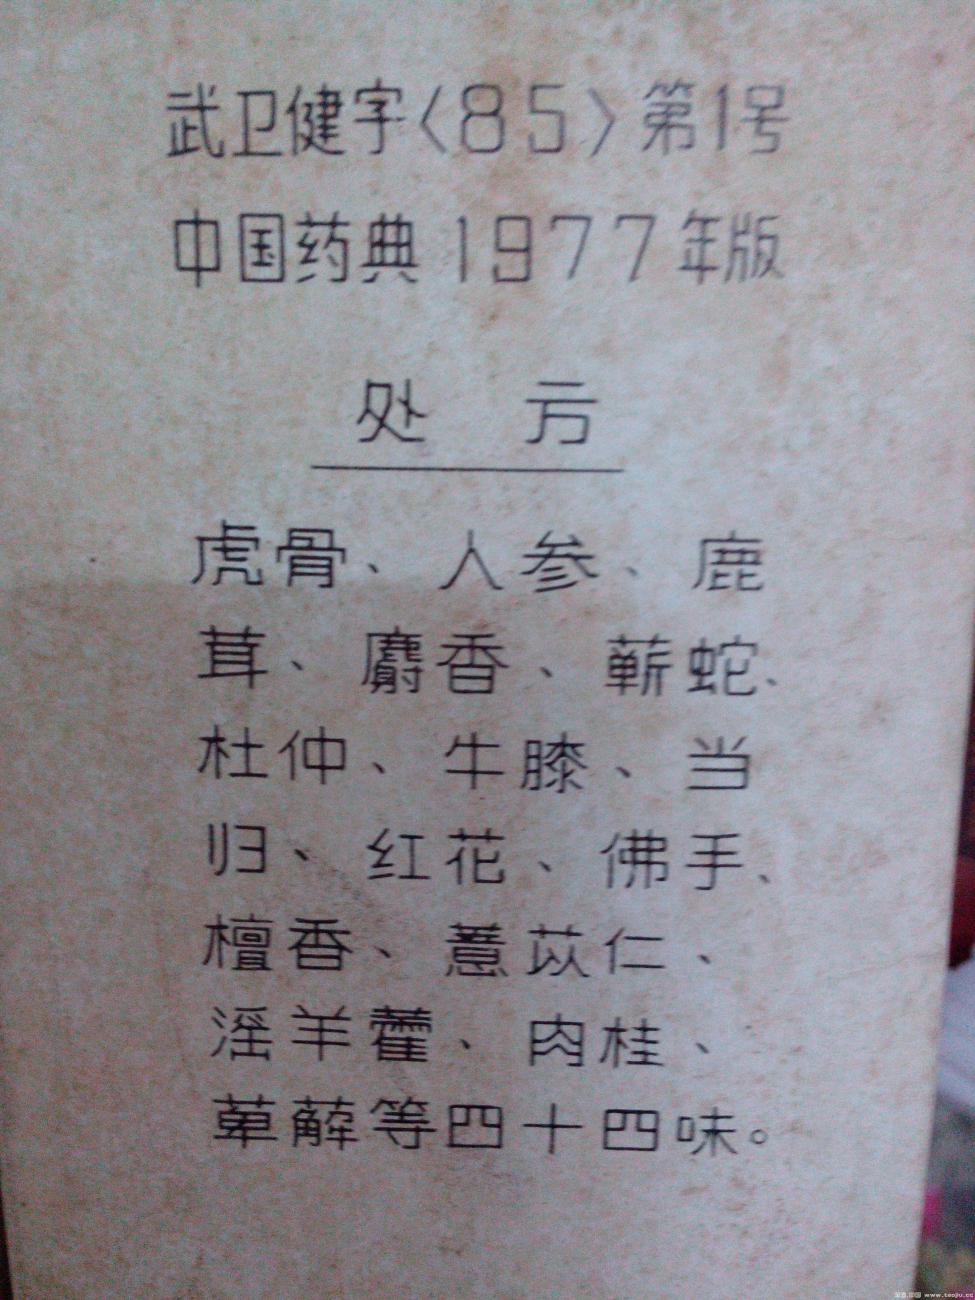 武卫健字〈85〉第1号
中国药典1977年版
处 方
虎骨、人参、鹿
茸、麝香、蕲蛇、
杜仲、牛膝、当
归、红花、佛手、
檀香、薏苡仁、
淫羊藿、肉桂、
萆薢等四十四味。
www.taojiu.cc